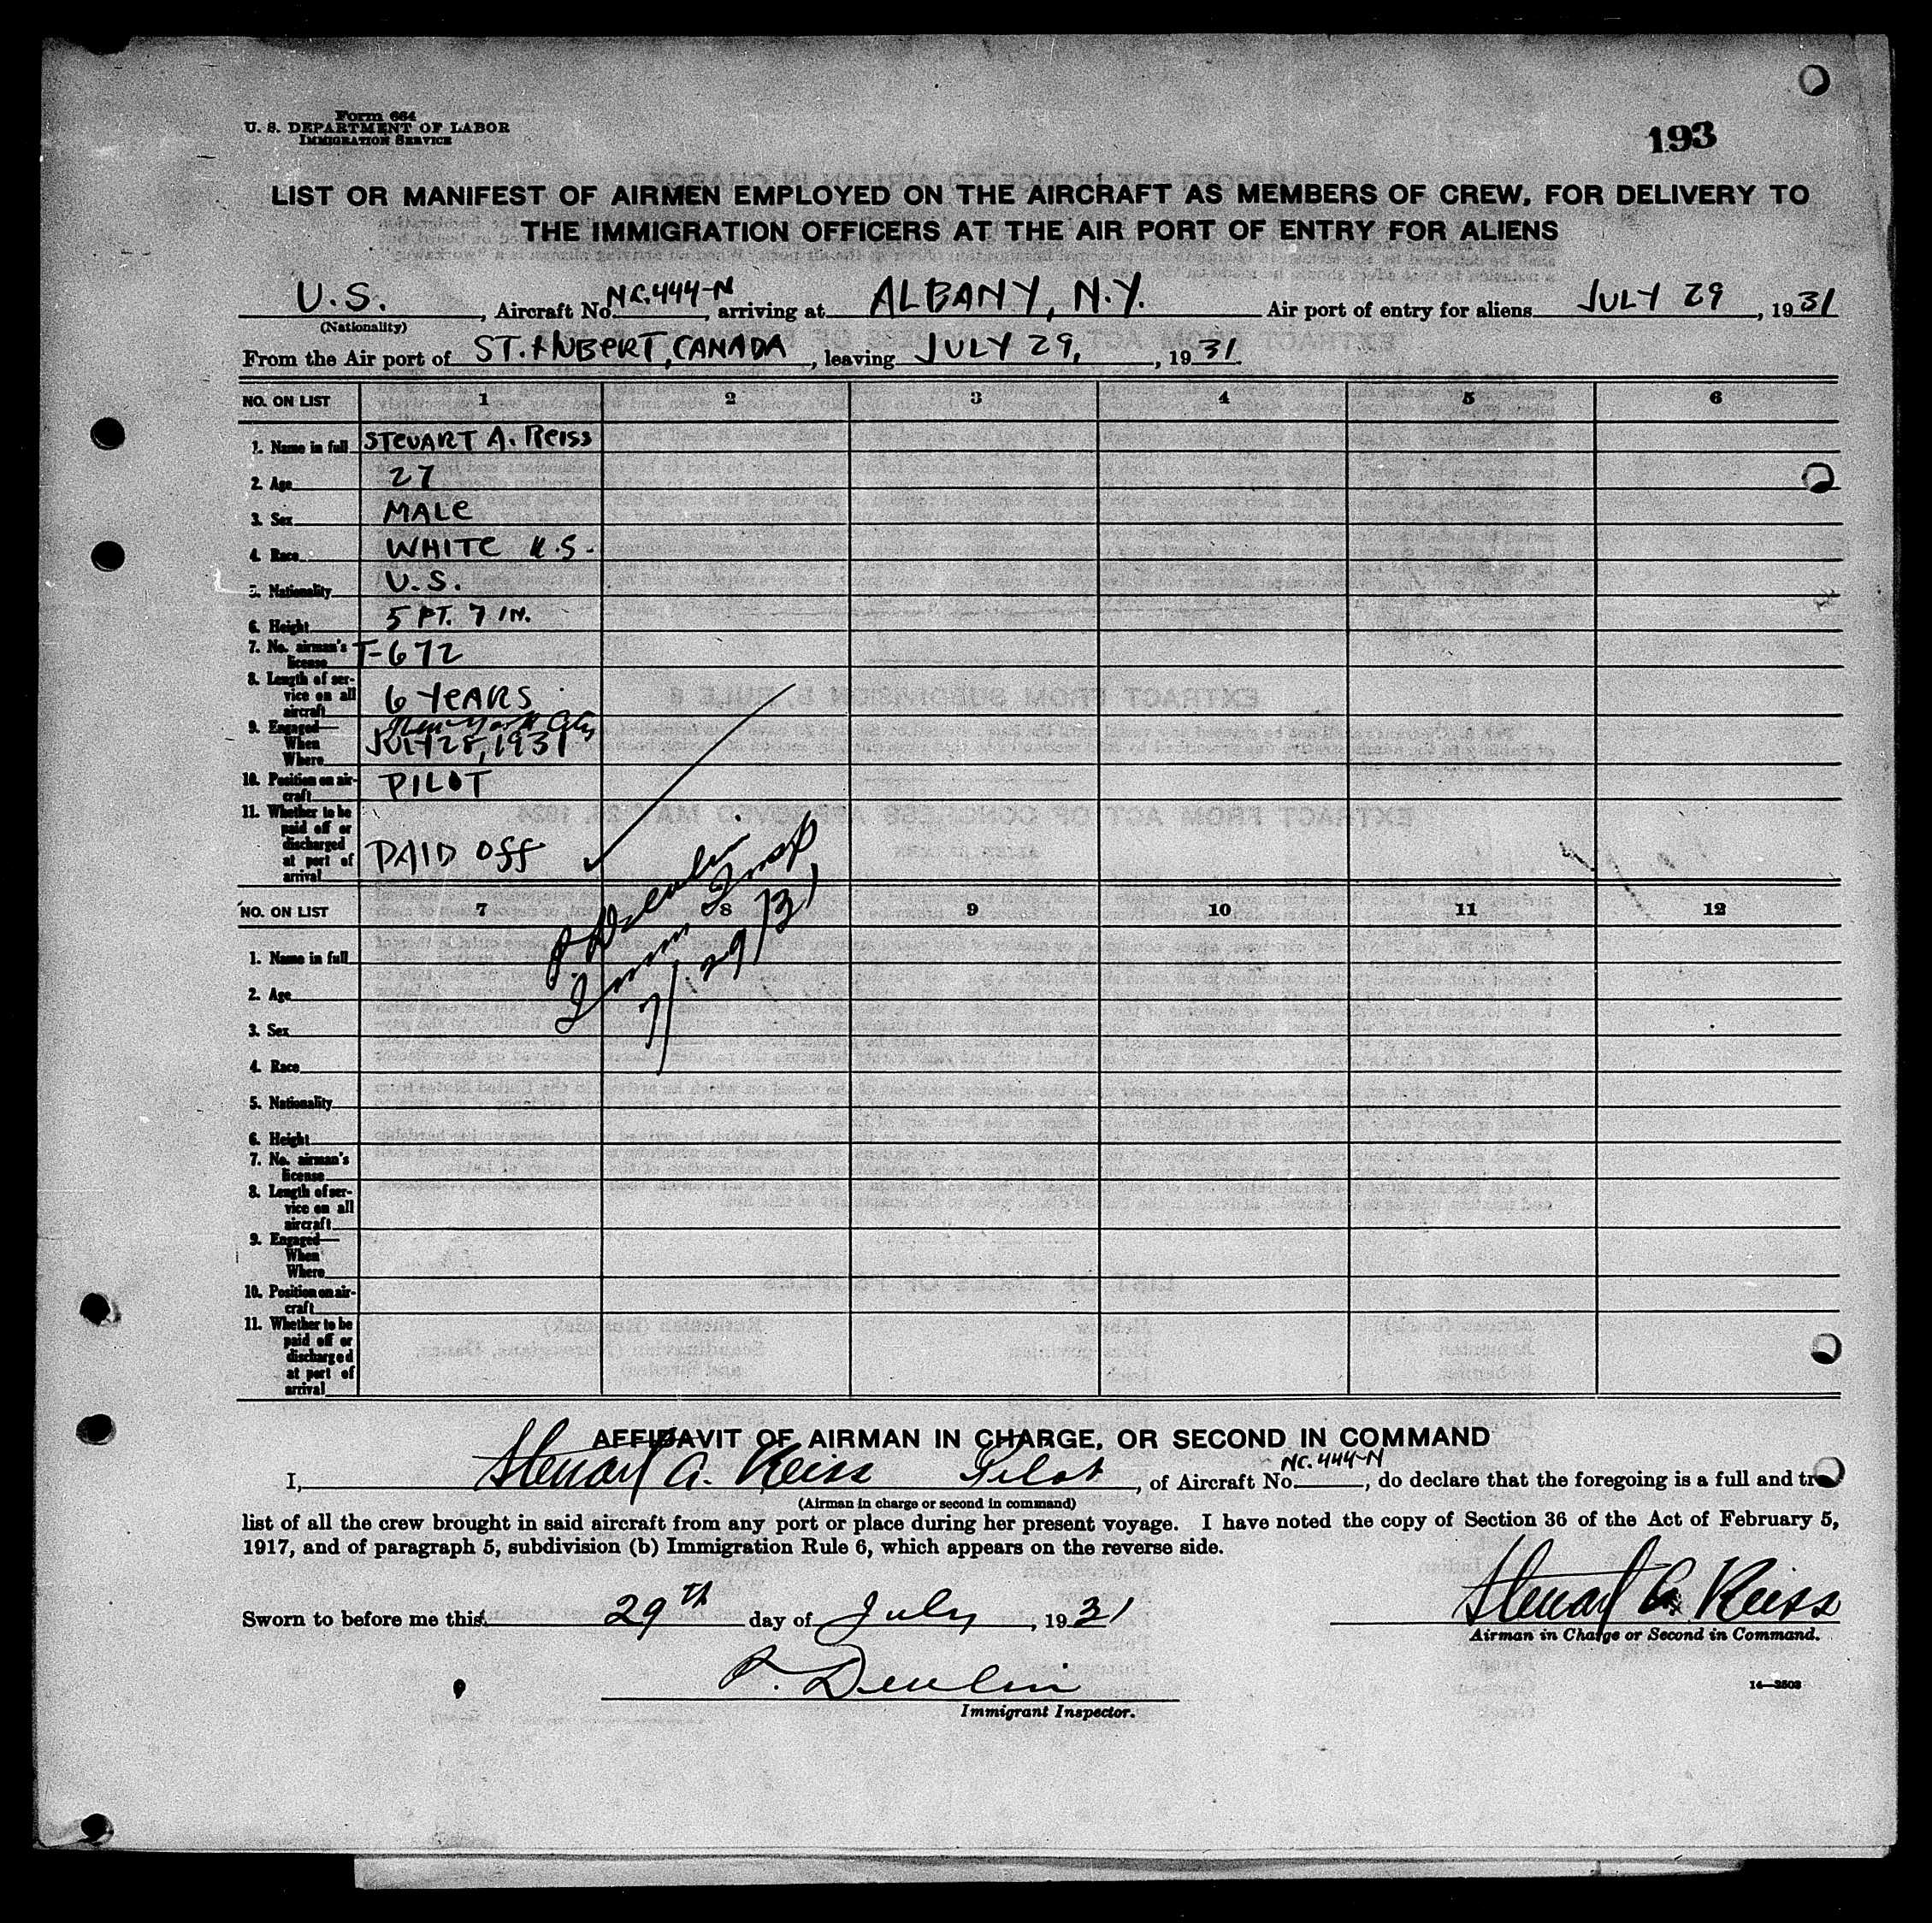 Form 664
U. S. DEPARTMENT OF LABOR
IMMIGRATION SERVICE
193
LIST OR MANIFEST OF AIRMEN EMPLOYED ON THE AIRCRAFT AS MEMBERS OF CREW, FOR DELIVERY TO
THE IMMIGRATION OFFICERS AT THE AIR PORT OF ENTRY FOR ALIENS
U.S., Aircraft No. NC.444-N, arriving at ALBANY, N.Y. Air port of entry for aliens JULY 29, 1931
(Nationality)
From the Air port of ST. HUBERT, CANADA, leaving JULY 29, , 1931
NO. ON LIST 1 2 3 4 5 6
1. Name in full STEUART A. REISS
2. Age 27
3. Sex MALE
4. Race WHITE U.S.
5. Nationality U.S.
6. Height 5 FT. 7 IN.
7. No. airman's
license T-672
8. Length of ser-
vice on all
aircraft 6 YEARS
9. Engaged— New York City
When JULY 28, 1931
Where
10. Position on air-
craft PILOT
11. Whether to be
paid off or
discharged
at port of
arrival PAID OFF
P. Devlin
Imm Insp
7/29/31
NO. ON LIST 7 8 9 10 11 12
1. Name in full
2. Age
3. Sex
4. Race
5. Nationality
6. Height
7. No. airman's
license
8. Length of ser-
vice on all
aircraft
9. Engaged—
When
Where
10. Position on air-
craft
11. Whether to be
paid off or
discharged
at port of
arrival
AFFIDAVIT OF AIRMAN IN CHARGE, OR SECOND IN COMMAND
I, Steuart A. Reiss Pilot, of Aircraft No. NC.444-N, do declare that the foregoing is a full and tr
(Airman in charge or second in command)
list of all the crew brought in said aircraft from any port or place during her present voyage. I have noted the copy of Section 36 of the Act of February 5,
1917, and of paragraph 5, subdivision (b) Immigration Rule 6, which appears on the reverse side.
Sworn to before me this 29th day of July, 1931
Steuart A. Reiss
Airman in Charge or Second in Command.
P. Devlin
Immigrant Inspector.
14—2503